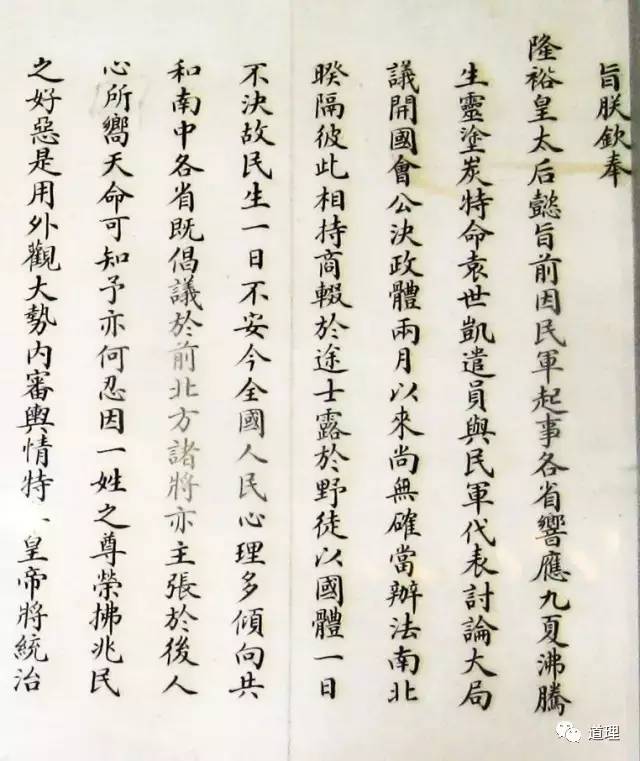 旨朕欽奉
隆裕皇太后懿旨前因民軍起事各省響應九夏沸騰
生靈塗炭特命袁世凱遣員與民軍代表討論大局
議開國會公決政體兩月以來尚無確當辦法南北
暌隔彼此相持商輟於途士露於野徒以國體一日
不決故民生一日不安今全國人民心理多傾向共
和南中各省既倡議於前北方諸將亦主張於後人
心所嚮天命可知予亦何忍因一姓之尊榮拂兆民
之好惡是用外觀大勢內審輿情特皇帝將統治
道理